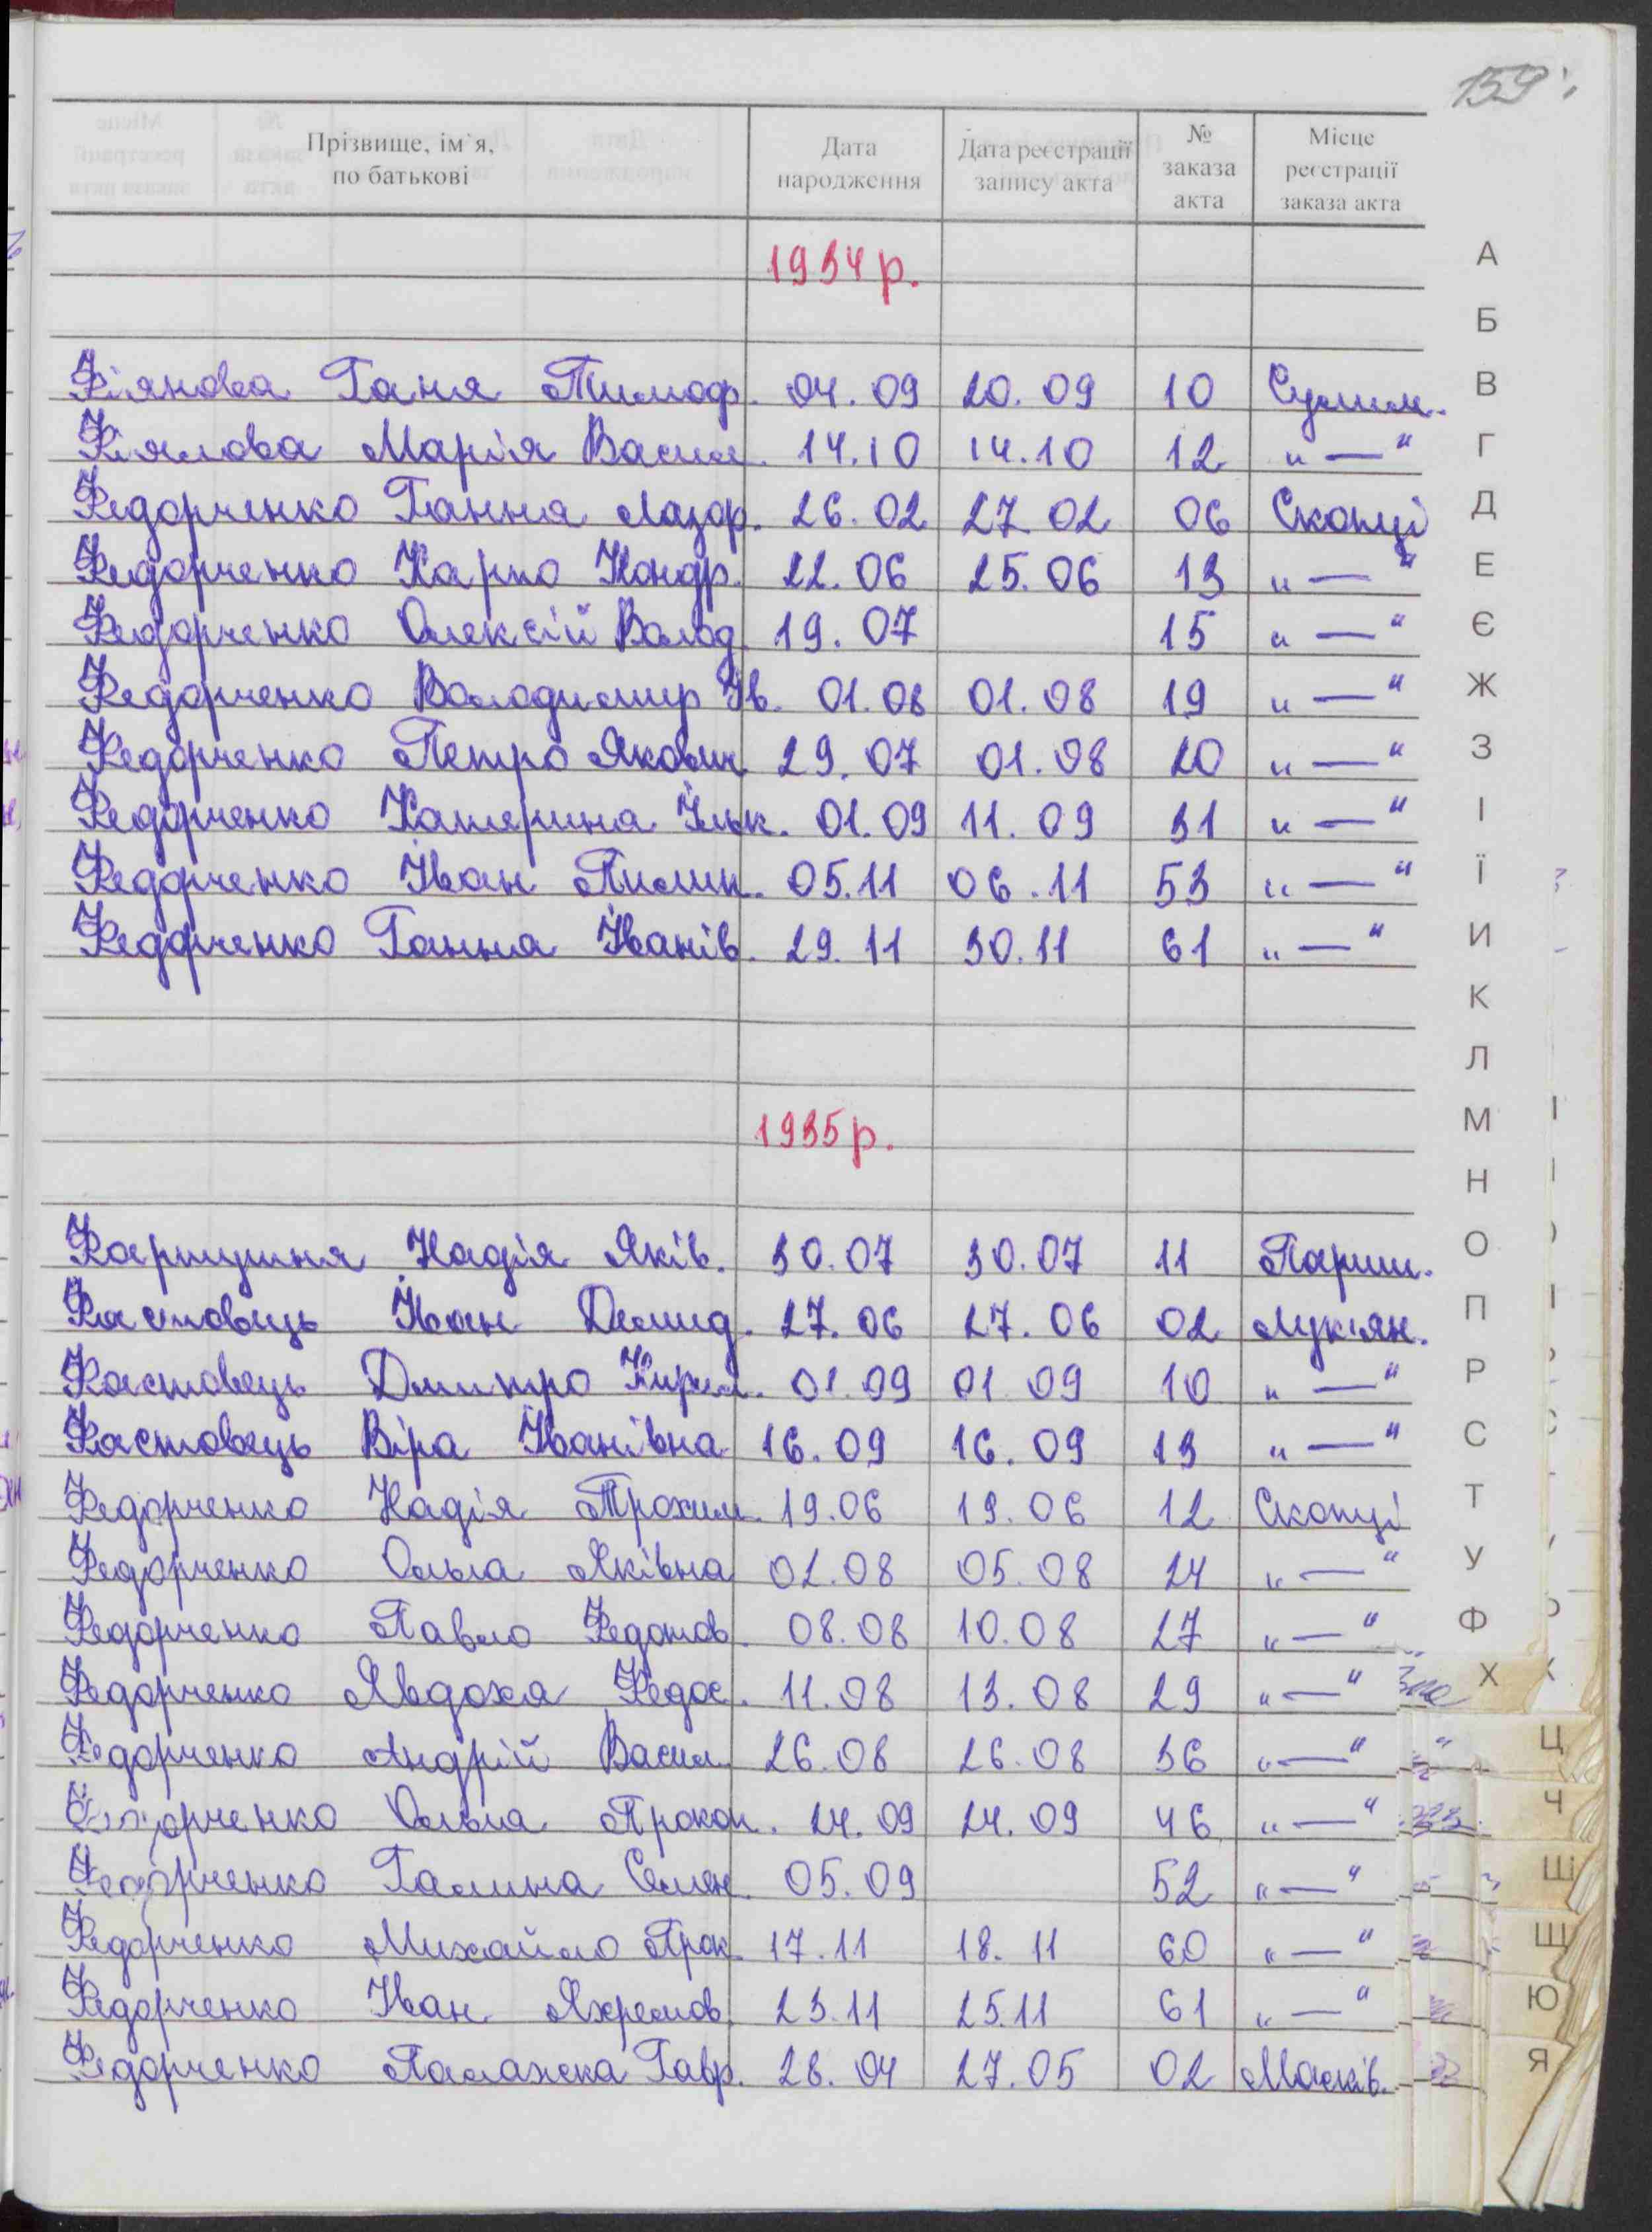 159
Прізвище, ім`я, по батькові Дата народження Дата реєстрації запису акта № заказа акта Місце реєстрації заказа акта
1934 р.
Фіянова Ганя Тимоф. 04.09 20.09 10 Сулим.
Фіялова Марія Васил. 14.10 14.10 12 "—"
Федорченко Ганна Лазор. 26.02 27 02 06 Скопці
Федорченко Карпо Кондр. 22.06 25.06 13 "—"
Федорченко Олексій Волод. 19.07 15 "—"
Федорченко Володимир Ів. 01.08 01.08 19 "—"
Федорченко Петро Якович 29.07 01.08 20 "—"
Федорченко Катерина Ільк. 01.09 11.09 31 "—"
Федорченко Іван Пилип. 05.11 06.11 53 "—"
Федорченко Ганна Іванів. 29.11 30.11 61 "—"
1935 р.
Фартушня Надія Яків. 30.07 30.07 11 Париш.
Фастовець Іван Демид. 27.06 27.06 02 Лук'ян.
Фастовець Дмитро Кирил. 01.09 01.09 10 "—"
Фастовець Віра Іванівна 16.09 16.09 13 "—"
Федорченко Надія Трохим. 19.06 19.06 12 Скопці
Федорченко Ольга Яківна 02.08 05.08 24 "—"
Федорченко Павло Федотов. 08.08 10.08 27 "—"
Федорченко Явдоха Федос. 11.08 13.08 29 "—"
Федорченко Андрій Васил. 26.08 26.08 36 "—"
Федорченко Ольга Прокоп. 24.09 24.09 46 "—"
Федорченко Галина Семен. 05.09 52 "—"
Федорченко Михайло Прок. 17.11 18.11 60 "—"
Федорченко Іван Яхремов. 23.11 25.11 61 "—"
Федорченко Палажка Гавр. 28.04 27.05 02 Масків.
А
Б
В
Г
Д
Е
Є
Ж
З
І
Ї
И
К
Л
М
Н
О
П
Р
С
Т
У
Ф
Х
Ц
Ч
Ш
Щ
Ю
Я